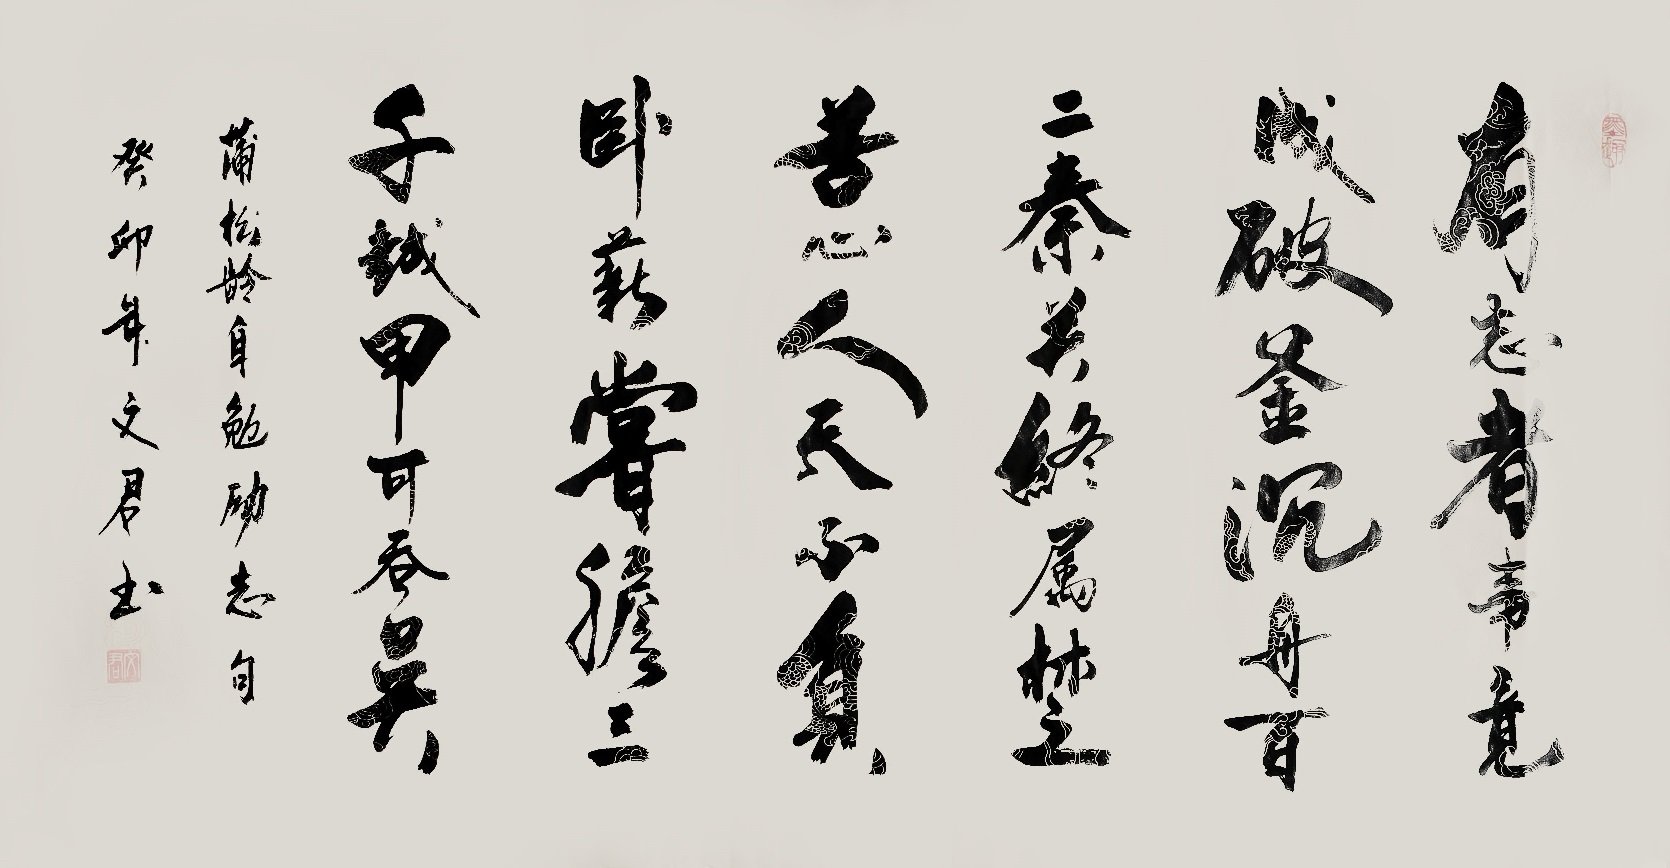 有志者事竟
成破釜沉舟百
二秦关終属楚
苦心人天不負
卧薪嘗膽三
千越甲可吞吴
蒲松齡自勉励志句
癸卯年文君书
文君